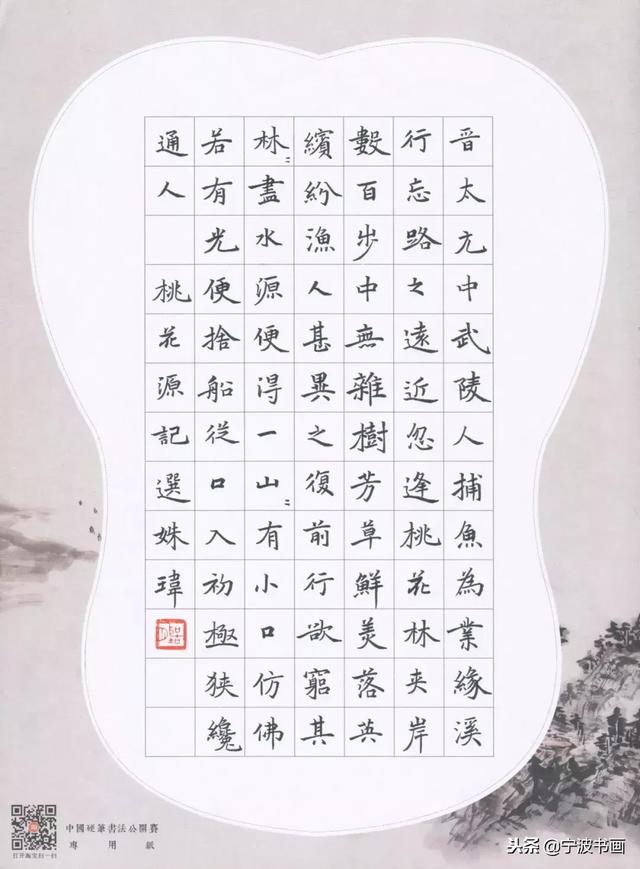 晋太元中武陵人捕魚為業緣溪
行忘路之遠近忽逢桃花林夹岸
數百步中無雜樹芳草鮮美落英
繽紛漁人甚異之復前行欲窮其
林〻盡水源便得一山〻有小口仿佛
若有光便捨船從口入初極狹纔
通人 桃花源記選姝瑋
中國硬筆書法公開賽
專用紙
打开淘宝扫一扫
头条@宁波书画